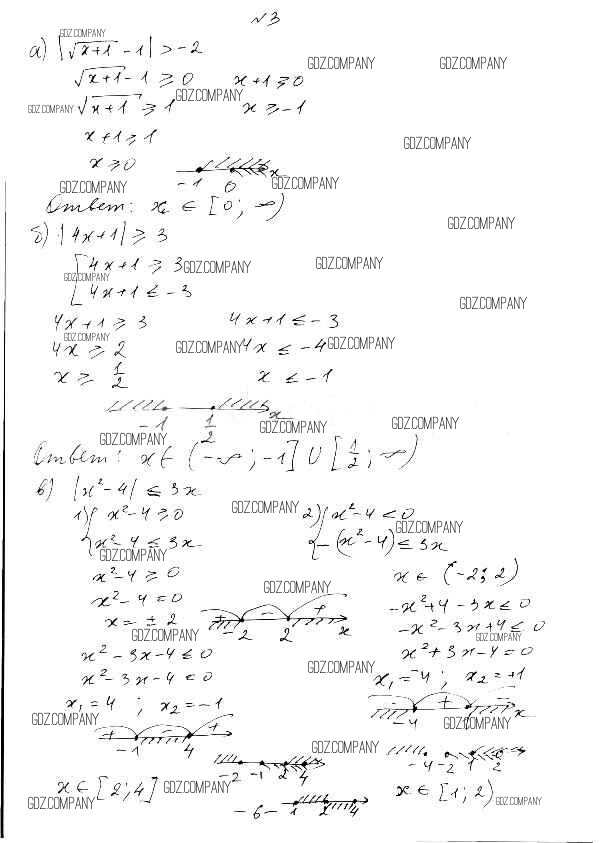 №3
а) |√x+1 - 1| > -2
√x+1 - 1 ≥ 0   x+1 ≥ 0
√x+1 ≥ 1   x ≥ -1
x+1 ≥ 1
x ≥ 0
-1 0 x
Ответ: x ∈ [0; ∞)
б) |4x+1| ≥ 3
[4x+1 ≥ 3
[4x+1 ≤ -3
4x+1 ≥ 3   4x+1 ≤ -3
4x ≥ 2   4x ≤ -4
x ≥ 1/2   x ≤ -1
-1 1/2 x
Ответ: x ∈ (-∞; -1] ∪ [1/2; ∞)
в) |x²-4| ≤ 3x
1) { x²-4 ≥ 0   2) { x²-4 < 0
{ x²-4 ≤ 3x   { -(x²-4) ≤ 3x
x²-4 ≥ 0   x ∈ (-2; 2)
x²-4 = 0   -x²+4-3x ≤ 0
x = ±2   -2 - 2 + x   -x²-3x+4 ≤ 0
x²-3x-4 ≤ 0   x²+3x-4 = 0
x²-3x-4 = 0   x₁ = -4; x₂ = +1
x₁ = 4; x₂ = -1   - -4 + 1 x
+ -1 - 4 +
-2 -1 2 4   -4 -2 1 2
x ∈ [2; 4]   x ∈ [1; 2)
-6- 1 2 4
GDZ.COMPANY